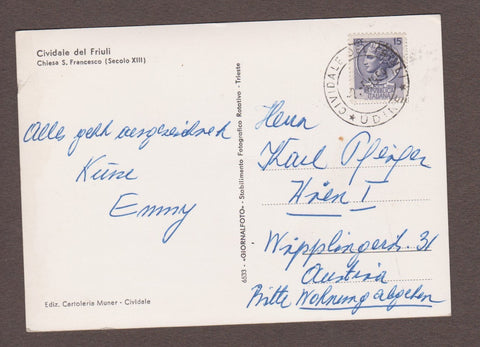 Cividale del Friuli
Chiesa S. Francesco (Secolo XIII)
Alles geht ausgezeichnet
Küsse
Emmy
Ediz. Cartoleria Muner - Cividale
6533 - «GIORNALFOTO» - Stabilimento Fotografico Rotativo - Trieste
LIRE 15
CIVIDALE DEL FRIULI
* UDINE *
Herrn
Karl
Wien I
Wipplingerst. 31
Austria
Bitte Wohnung abgeben